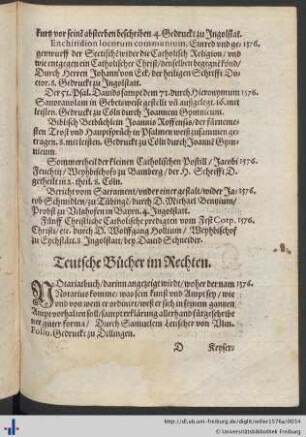 kurtz vor seind absterben beschriben 4. Gedruckt zu Ingolstat.
Enchiridion locorum communium, Einred vnd ge- 1576.
genwurff der Sectischē wider die Catholisch Religion / vnd
wie entgegen ein Catholischer Christ / denselben begegnē könd /
Durch Herren Johann von Eck / der heiligen Schrifft Do-
ctor. 8. Gedruckt zu Ingolstatt.
Der 51. Psal. Dauids sampt dem 72. durch Hieronymum 1576.
Sauonarolam in Gebetsweise gestelt vñ außgelegt. 16. mit
leistlen. Gedruckt zu Cöln durch Joannem Gymnicum.
Biblisch Betbüchlein Joannis Roffensis, der fürnemе-
sten Trost vnd Hauptsprüch in Psalmen weiß zusammen ge-
tragen. 8. mit leistlen. Gedruckt zu Cöln durch Joannē Gym-
nicum.
Sommertheil der kleinen Catholischen Postill / Jacobi 1576.
Feucht / Weyhbischofs zu Bamberg / der H. Schrifft D.
getheilt in 2. theil. 8. Cöln.
Bericht vom Sacrament / vnder einer gestalt / wider Ja- 1576.
cob Schmidlin / zu Tübing / durch D. Michael
Probst zu in Bayrn. 4. Ingolstatt.
Fünff Christliche Catholische predigen vom Fest Corp. 1576.
Christi / etc. durch D. Wolffgang / Weyhbischof
zu Eychstätt. 8. Ingolstatt / bey Dauid Schneider.
Teutsche Bücher im Rechten.
NOtariatbuch / darinn angezeigt würdt / woher der nam 1576.
Notarius komme / was sein kunst vnd Ampt sey / wie
vnd von wem er ordiniert / weß er sich in seinem gantzen
Ampt verhalten soll / sampt erklärung allerhand fürgeschribe
ner guter form / Durch Samuelem von Vlm.
Folio. Gedruckt zu Dillingen.
D Keyser-
http://dl.ub.uni-freiburg.de/diglit/weller1576a/0034
© Universitätsbibliothek Freiburg